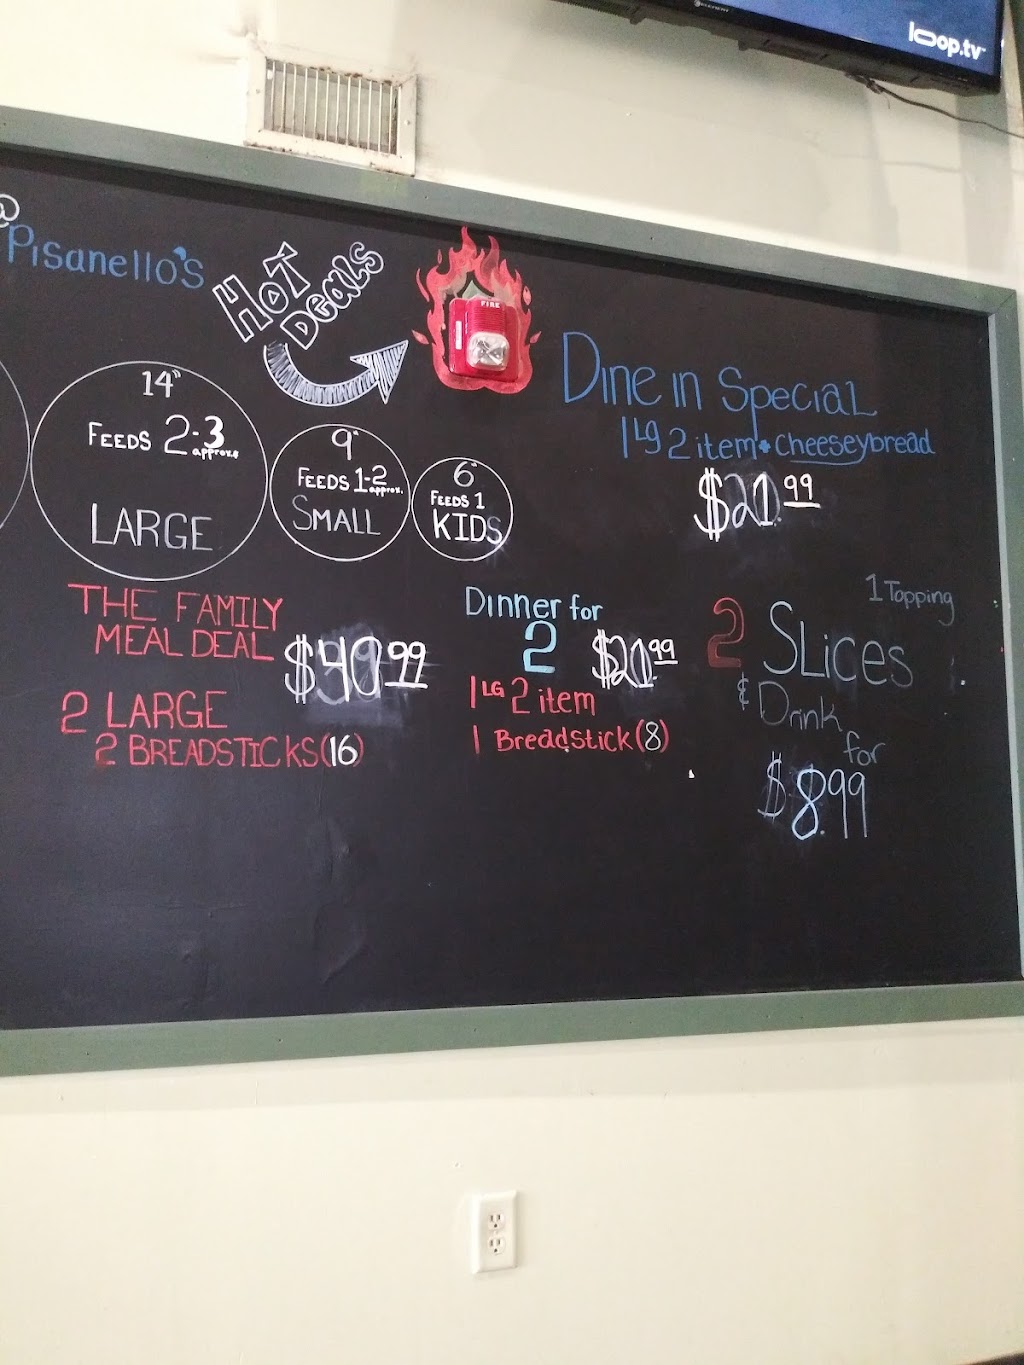 loop.tv
@
Pisanello's
HOT
Deals
FIRE
14"
FEEDS 2-3
approx.
LARGE
9"
FEEDS 1-2
approx.
SMALL
6"
FEEDS 1
KIDS
Dine in Special
1 Lg 2 item + Cheeseybread
$21.99
THE FAMILY
MEAL DEAL
$40.99
2 LARGE
2 BREADSTICKS (16)
Dinner for
2
$20.99
1 LG 2 item
1 Breadstick (8)
1 Topping
2 Slices
& Drink
for
$8.99